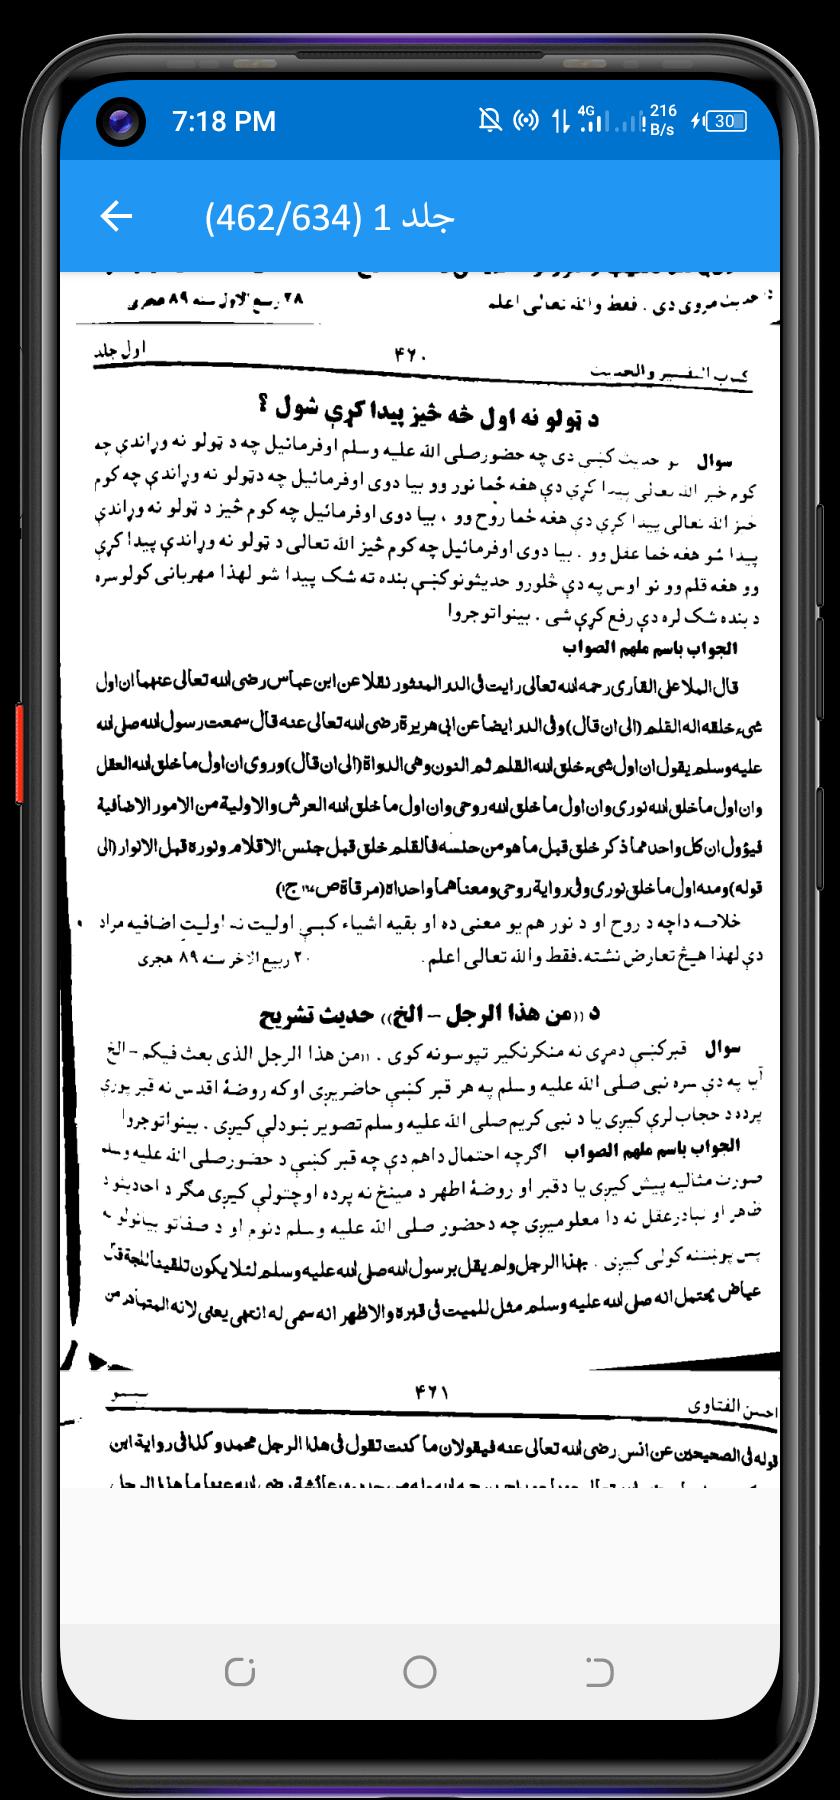 7:18 PM
4G
216 B/s
30
جلد 1 (462/634)
حدیث مروی دی . فقط والله تعالی اعلم
۲۸ ربیع الاول سنه ۸۹ هجری
کتاب التفسیر والحدیث
۴۶۰
اول جلد
د ټولو نه اول څه څیز پیدا کړې شول ؟
سوال حدیث کښې دی چه حضور صلی الله علیه وسلم اوفرمائیل چه د ټولو نه وړاندې چه
کوم خیز الله تعالی پیدا کړې دې هغه ځما نور وو بیا دوی اوفرمائیل چه دټولو نه وړاندې چه کوم
خیز الله تعالی پیدا کړې دې هغه ځما روح وو ، بیا دوی اوفرمائیل چه کوم څیز د ټولو نه وړاندې
پیدا شو هغه خما عقل وو . بیا دوی اوفرمائیل چه کوم څیز الله تعالی د ټولو نه وړاندې پیدا کړې
وو هغه قلم وو نو اوس په دې څلورو حدیثونو کښې بنده ته شک پیدا شو لهذا مهربانی کولو سره
د بنده شک لره دې رفع کړې شی . بینوا توجروا
الجواب باسم ملهم الصواب
قال الملا علی القاری رحمه الله تعالی رایت فی الدر المنثور نقلا عن ابن عباس رضی الله تعالی عنهما ان اول
شیء خلقه اله القلم (الی ان قال) وفی الدر ایضا عن ابی هریرة رضی الله تعالی عنه قال سمعت رسول الله صلی الله
علیه وسلم یقول ان اول شیء خلق الله القلم ثم النون وهی الدواة (الی ان قال) وروی ان اول ما خلق الله العقل
وان اول ما خلق الله نوری وان اول ما خلق الله روحی وان اول ما خلق الله العرش والاولیة من الامور الاضافیة
فیؤول ان کل واحد مما ذکر خلق قبل ما هو من جنسه فالقلم خلق قبل جنس الاقلام ونوره قبل الانوار (الی
قوله) ومنه اول ما خلق نوری وفی روایة روحی ومعناهما واحد اه (مرقاة ص ج۱)
خلاصه داچه د روح او د نور هم یو معنی ده او بقیه اشیاء کښې اولیت نه اولیت اضافیه مراد
دې لهذا هیڅ تعارض نشته. فقط والله تعالی اعلم .
۲۰ ربیع الاخر سنه ۸۹ هجری
د ((من هذا الرجل – الخ)) حدیث تشریح
سوال قبر کښې دمړی نه منکرنکیر تپوسونه کوی . ((من هذا الرجل الذی بعث فیکم – الخ
آیا په دې سره نبی صلی الله علیه وسلم په هر قبر کښې حاضریږی اوکه روضهٔ اقدس نه قبر پورې
پرده د حجاب لرې کیږی یا د نبی کریم صلی الله علیه وسلم تصویر ښودلې کیږی . بینوا توجروا
الجواب باسم ملهم الصواب اګرچه احتمال داهم دې چه قبر کښې د حضور صلی الله علیه وسلم
صورت مثالیه پیش کیږی یا دقبر او روضهٔ اطهر د مینځ نه پرده اوچتولې کیږی مګر د احادیثو د
ظاهر او تبادر عقل نه دا معلومیږی چه دحضور صلی الله علیه وسلم دنوم او د صفاتو بیانولو نه
پس پوښتنه کولی کیږی . بهذا الرجل ولم یقل برسول الله صلی الله علیه وسلم لئلا یکون تلقینا للحجة قال
عیاض یحتمل انه صلی الله علیه وسلم مثل للمیت فی قبره والاظهر انه سمی له انتهی یعنی لانه المتبادر من
احسن الفتاوی
۴۶۱
قوله فی الصحیحین عن انس رضی الله تعالی عنه فیقولان ما کنت تقول فی هذا الرجل محمد وکذا فی روایة ابن